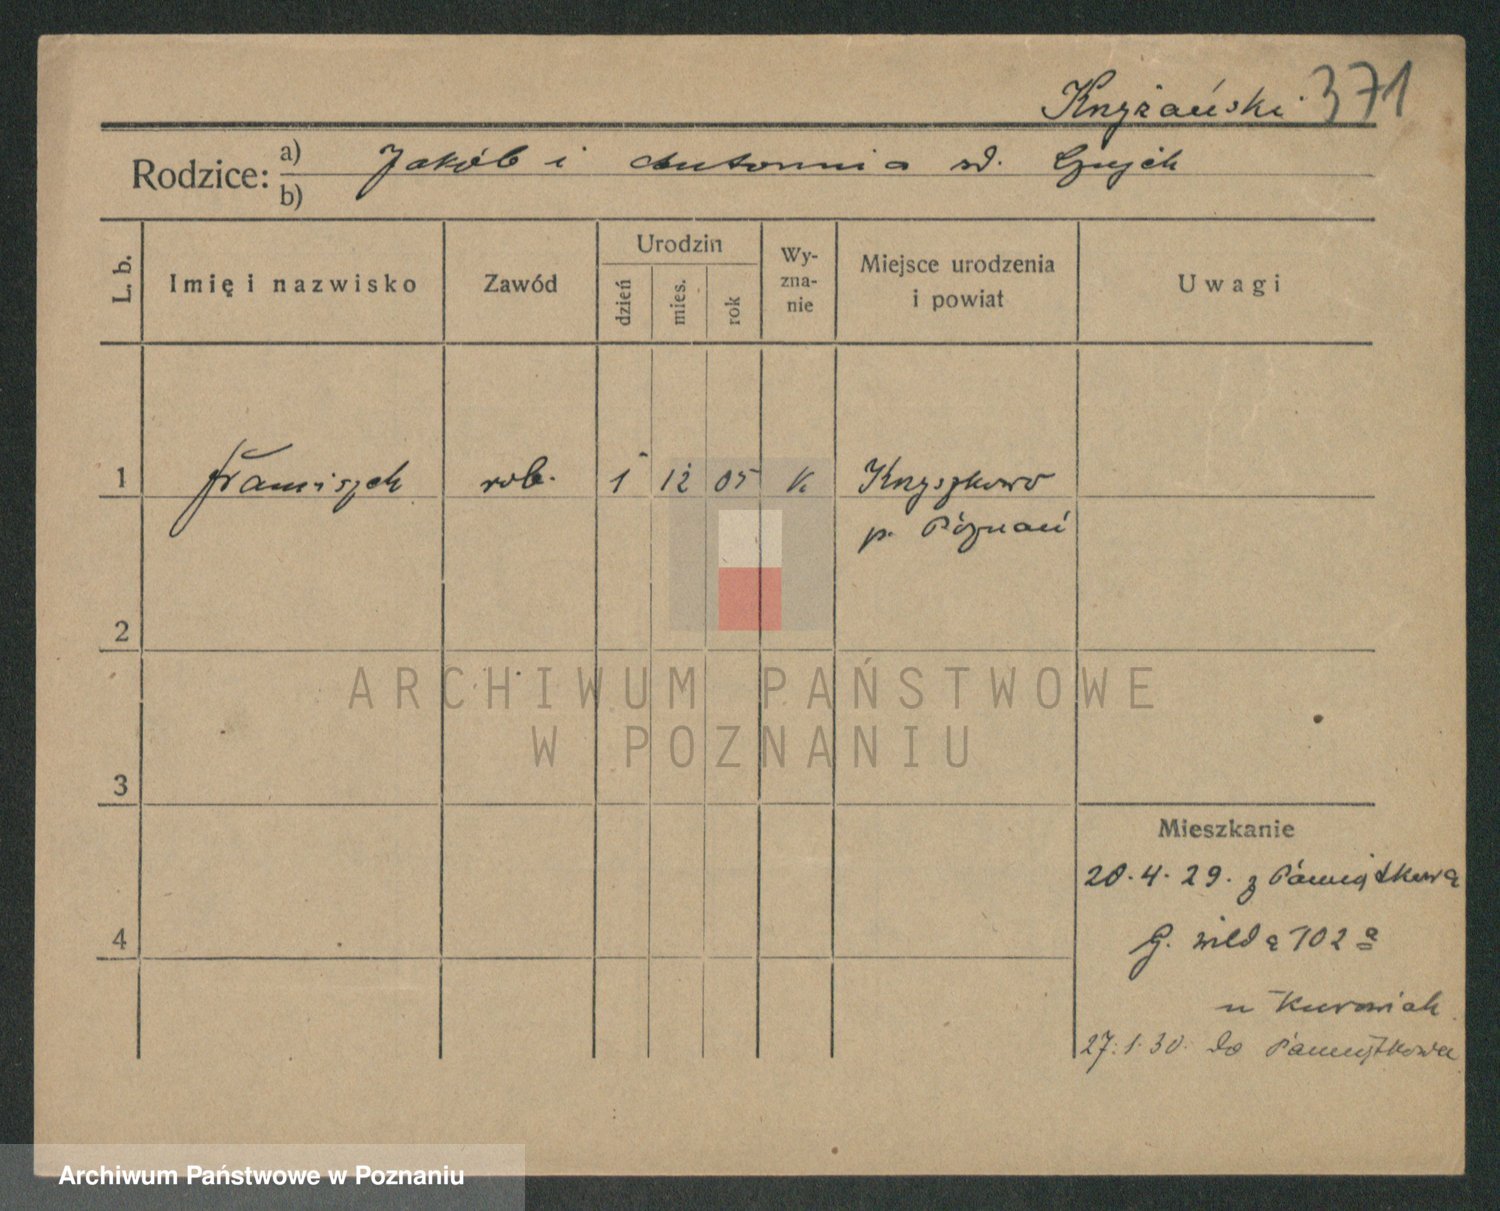 Krzyżański 371
Rodzice: a) Jakób i Antonina
b)
L. b.
Imię i nazwisko
Zawód
Urodzin
dzień
mies.
rok
Wy-
zna-
nie
Miejsce urodzenia
i powiat
Uwagi
1 Franciszek rob. 1 12 05 k Krzyszkowo
p. Poznań
2
3
4
Mieszkanie
28.4.29. z Pamiątkowa
G. Wilda 102 a
u Kurowiak
27.1.30. do Pamiątkowa
ARCHIWUM PAŃSTWOWE
W POZNANIU
Archiwum Państwowe w Poznaniu